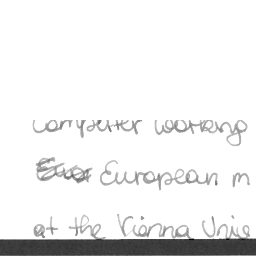 computer working
European m
at the Vienna Unive